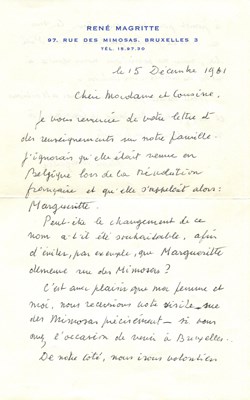 RENÉ MAGRITTE
97, RUE DES MIMOSAS, BRUXELLES 3
TÉL. 15.97.30
le 15 Décembre 1961
Chère Madame et Cousine,
Je vous remercie de votre lettre et
des renseignements sur notre famille.
J'ignorais qu'elle était venue en
Belgique lors de la Révolution
française et qu'elle s'appelait alors:
Margueritte.
Peut-être le changement de ce
nom a-t-il été souhaitable, afin
d'éviter, par exemple, que Margueritte
demeure rue des Mimosas?
C'est avec plaisir que ma femme et
moi, nous recevrions votre visite – rue
des Mimosas précisément – si vous
avez l'occasion de venir à Bruxelles.
De notre côté, nous irons volontiers